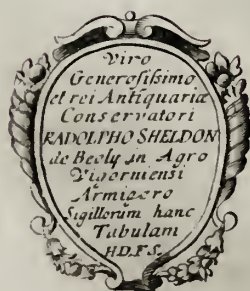 Viro
Generosissimo
et rei Antiquariæ
Conservatori
RADOLPHO SHELDON
de Beoly in Agro
Vigorniensi
Armigero
Sigillorum hanc
Tabulam
H.D.F.S.